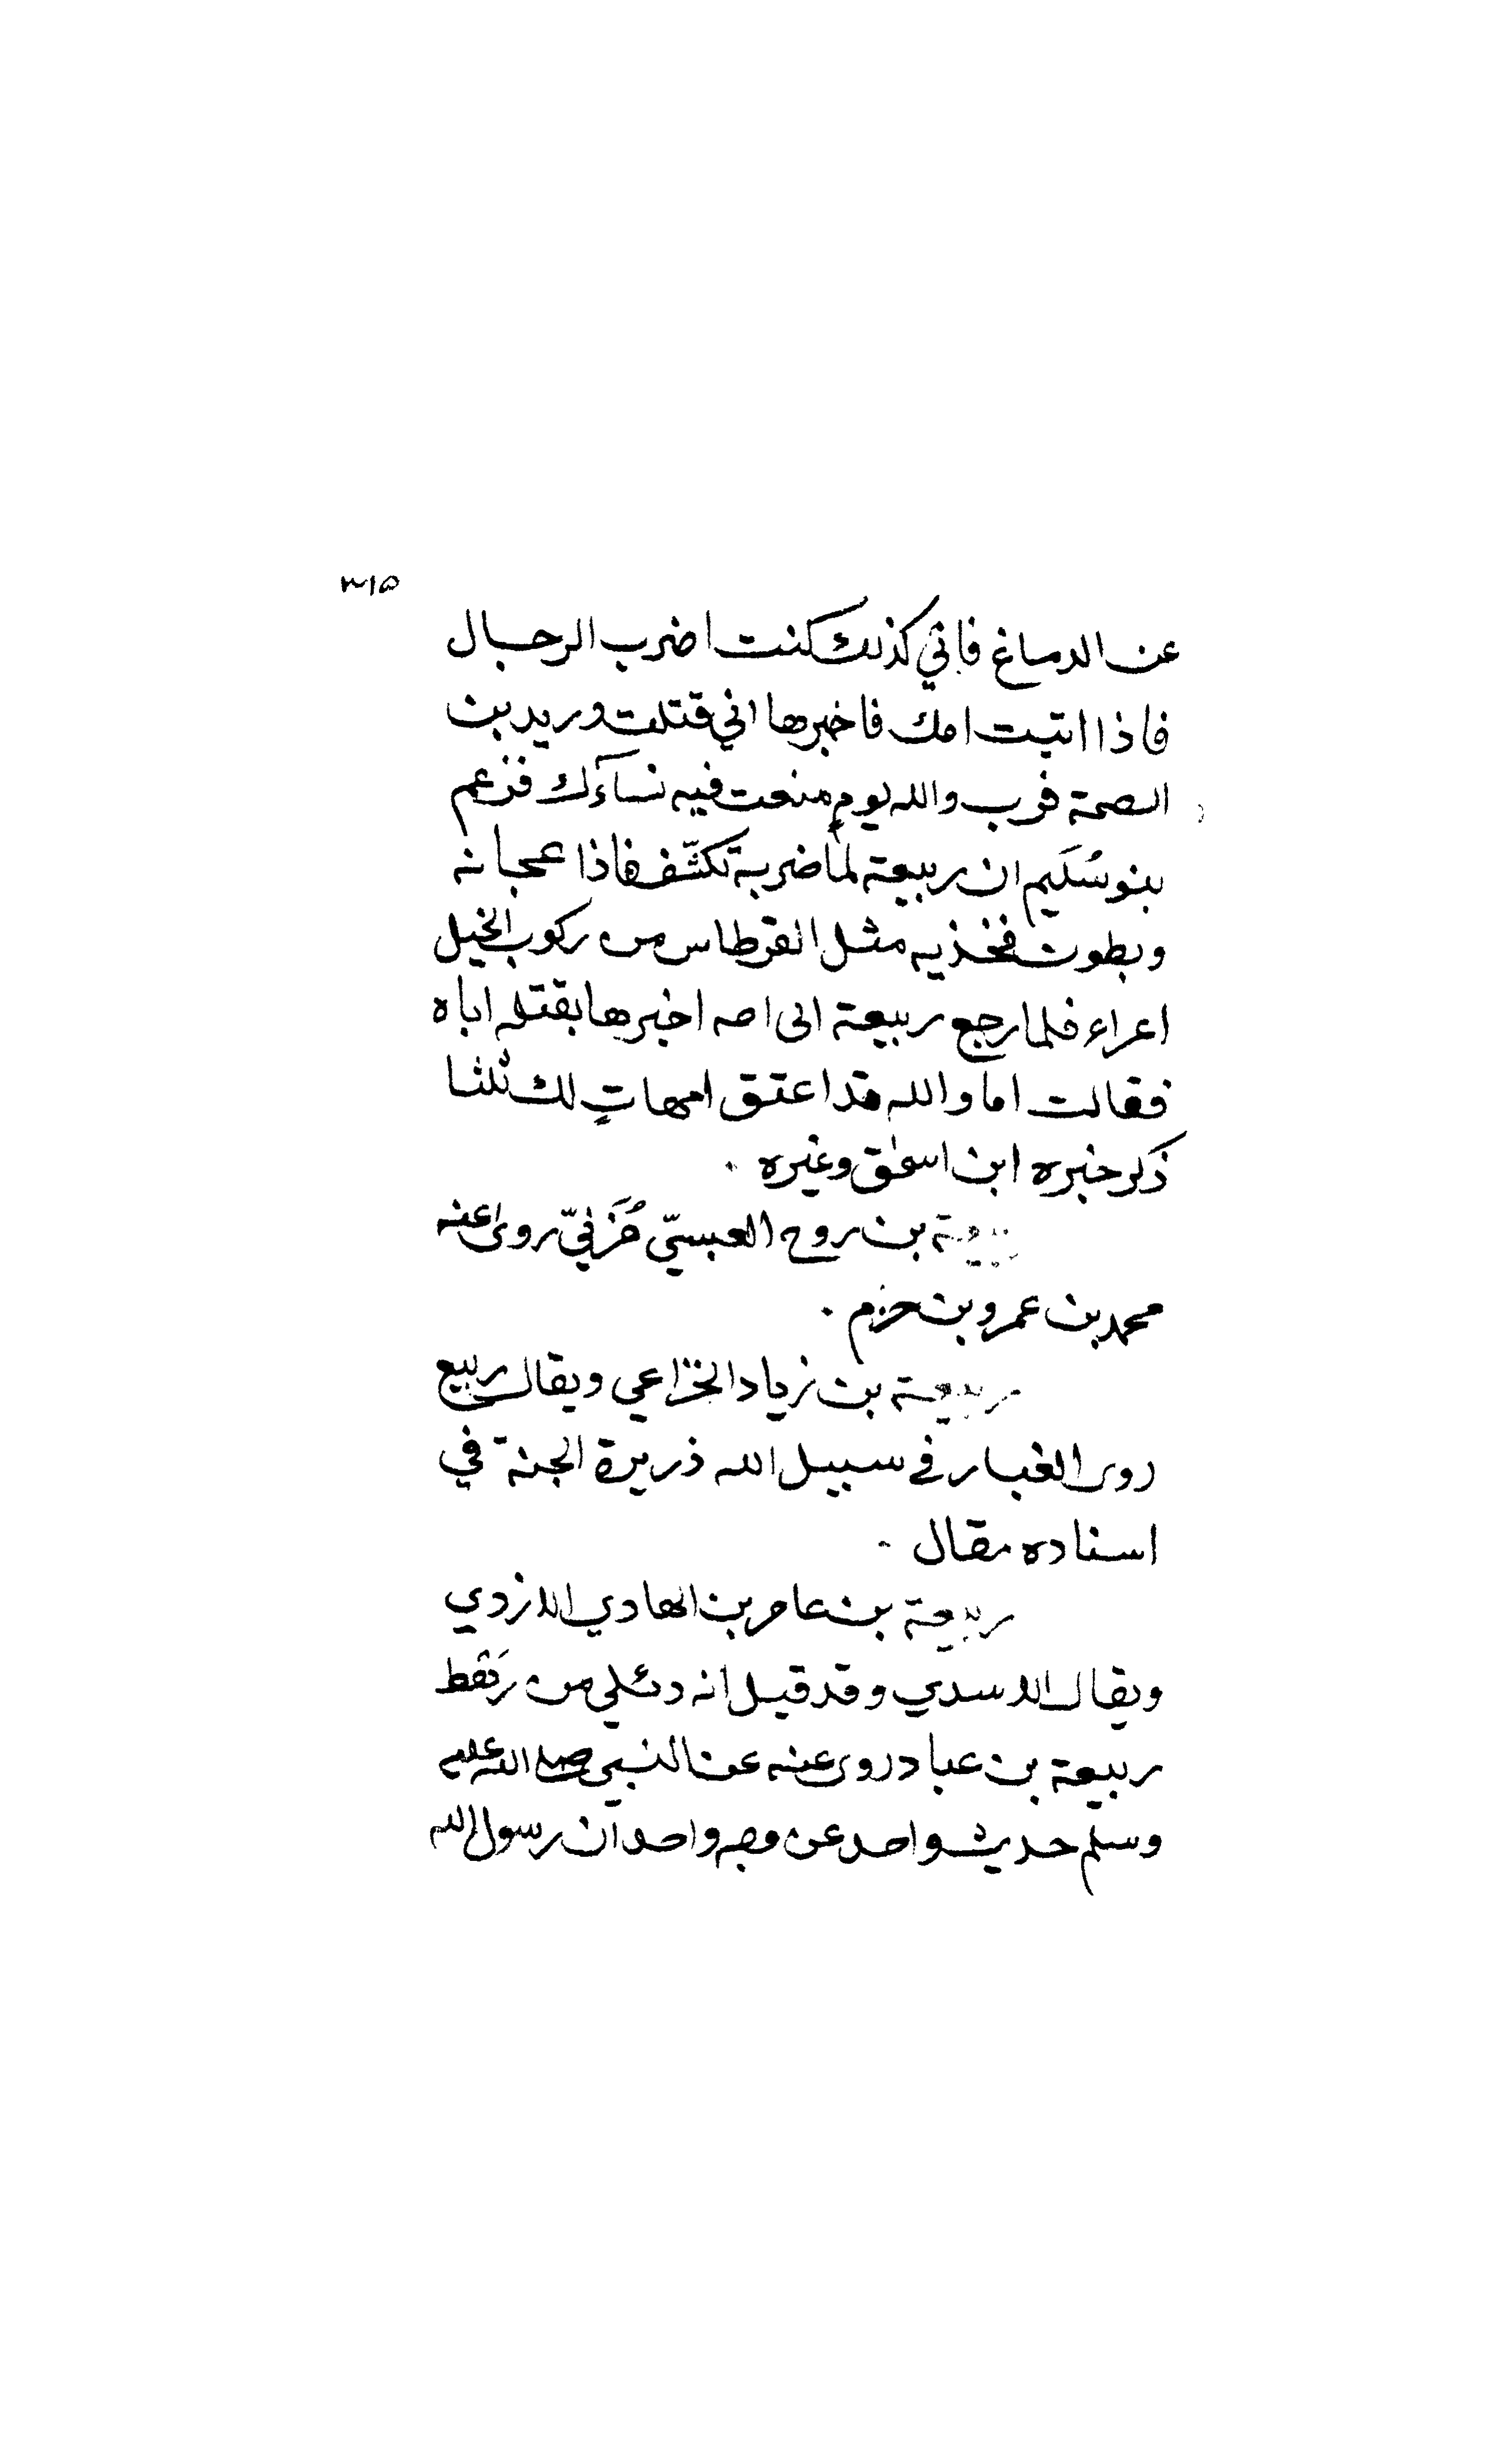 ٣١٥
عن الدماغ فاني كذلك كنت اضرب الرجال
فاذا اتيت امك فاخبرها اني قتلت دريد بن
الصمة فرب والله يومٍ منعت فيه نساَءك فزعم
بنو سُلَيم ان ربيعة لما ضربه تكشّف فاذا عجانه
وبطون فخذيه مثل القرطاس من ركوب الخيل
اعراء فلما رجع ربيعة الى امه اخبرها بقتله اياه
فقالت اما والله قد اعتق امهاتٍ لك ثلثا
ذكر خبره ابن اسحٰق وغيره .
ربيعة بن روح العبسيّ مُزَنيّ روى عنه
محمد بن عمرو بن حزم .
ربيعة بن زياد الخزاعي ويقال ربيع
روى الغبار في سبيل الله ذريرة الجنة في
اسناده مقال .
ربيعة بن عامر بن الهادي الازدي
ويقال الاسدي وقد قيل انه دئلي من رَهْط
ربيعة بن عباد روى عنه عن النبي صلى الله عليه
وسلم حديث واحد عن وجه واحد ان رسول الله